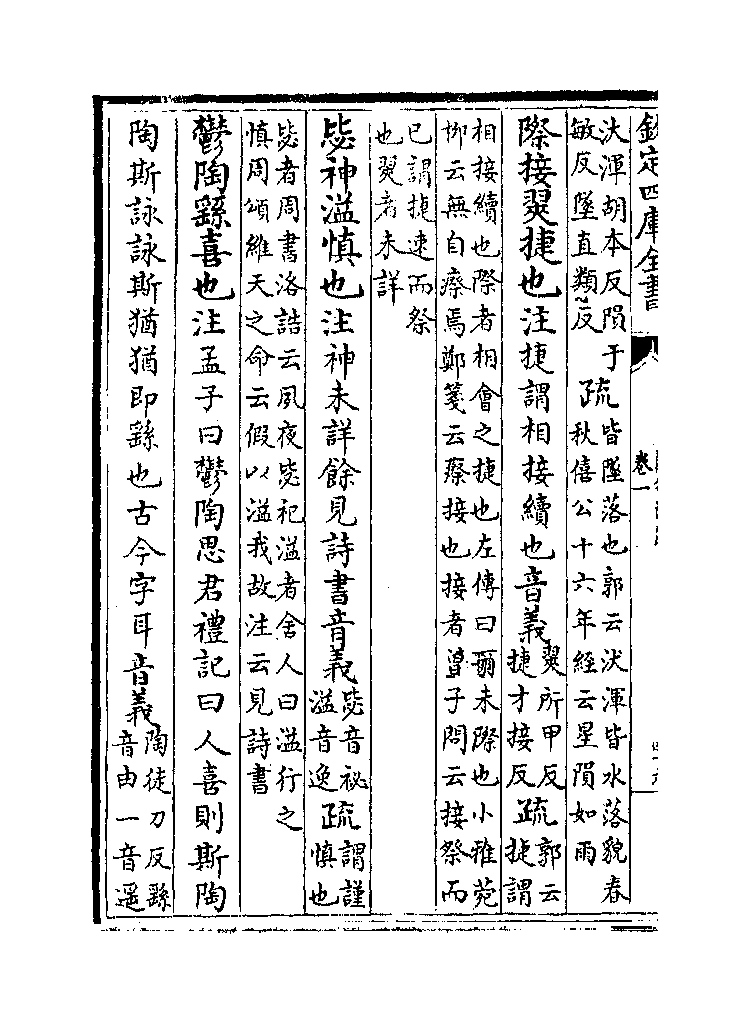 欽定四庫全書
卷一
汱渾胡本反隕于
敏反墜直類反
疏
皆墜落也郭云汱渾皆水落貌春
秋僖公十六年經云星隕如雨
際接翜捷也注捷謂相接續也音義
翜所甲反
捷才接反
疏
郭云
捷謂
相接續也際者相會之捷也左傳曰爾未際也小雅菀
栁云無自瘵焉鄭箋云瘵接也接者曾子問云接祭而
已謂捷速而祭
也翜者未詳
毖神溢慎也注神未詳餘見詩書音義
毖音祕
溢音逸
疏
謂謹
慎也
毖者周書洛誥云夙夜毖祀溢者舍人曰溢行之
慎周頌維天之命云假以溢我故注云見詩書
鬱陶繇喜也注孟子曰鬱陶思君禮記曰人喜則斯陶
陶斯詠詠斯猶猶即繇也古今字耳音義
陶徒刀反繇
音由一音遥